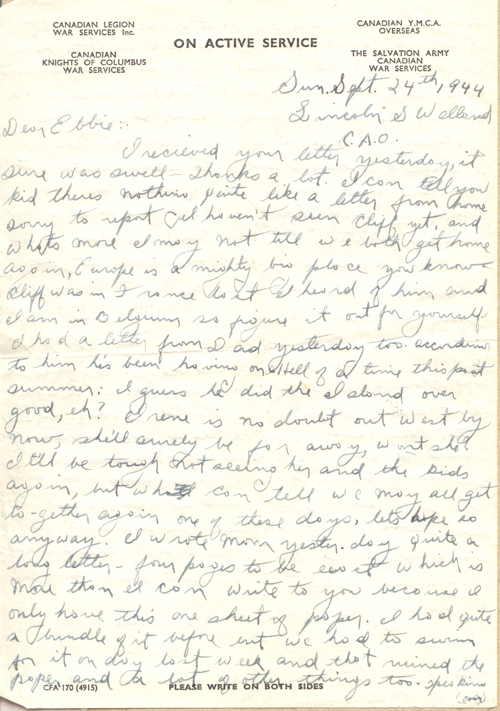 CANADIAN LEGION
WAR SERVICES Inc.
CANADIAN
KNIGHTS OF COLUMBUS
WAR SERVICES
ON ACTIVE SERVICE
CANADIAN Y.M.C.A.
OVERSEAS
THE SALVATION ARMY
CANADIAN
WAR SERVICES
Sun. Sept. 24th, 1944
Lincoln & Welland
C.A.O.
Dear Ebbie:
I recieved your letter yesterday, it
sure was swell - thanks a lot. I can tell you
kid theres nothing quite like a letter from home
sorry to report I haven't seen Cliff yet, and
whats more I may not till we both get home
again, Europe is a mighty big place you know-
Cliff was in France last I heard of him and
I am in Belgium so figure it out for yourself
I had a letter from Dad yesterday too. according
to him he's been having one Hell of a time this past
summer: I guess he did the Island over
good, eh? Irene is no doubt out West by
now, she'll surely be far away, wont she?
It'll be tough not seeing her and the kids
again, but who can tell we may all get
to-gether again one of these days, lets hope so
anyway. I wrote Mom yester-day quite a
long letter - four pages to be exact which is
more than I can write to you because I
only have this one sheet of paper. I had quite
a bundle of it before but we had to swim
for it on day last week and that ruined the
paper and a lot of other things too. Speaking
(over)
CFA 170 (4915)
PLEASE WRITE ON BOTH SIDES